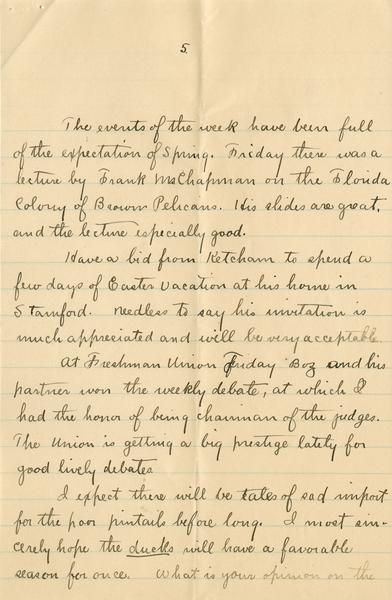 5.
The events of the week have been full
of the expectation of Spring. Friday there was a
lecture by Frank M. Chapman on the Florida
Colony of Brown Pelicans. His slides are great,
and the lecture especially good.
Have a bid from Ketcham to spend a
few days of Easter vacation at his home in
Stamford. Needless to say his invitation is
much appresiated and will be very acceptable.
At Freshman Union Friday Boz and his
partner won the weekly debate, at which I
had the honor of being chairman of the judges.
The Union is getting a big prestige lately for
good lively debates
I expect there will be tales of sad import
for the poor pintails before long. I most sin-
cerely hope the ducks will have a favorable
season for once. What is your opinion on the